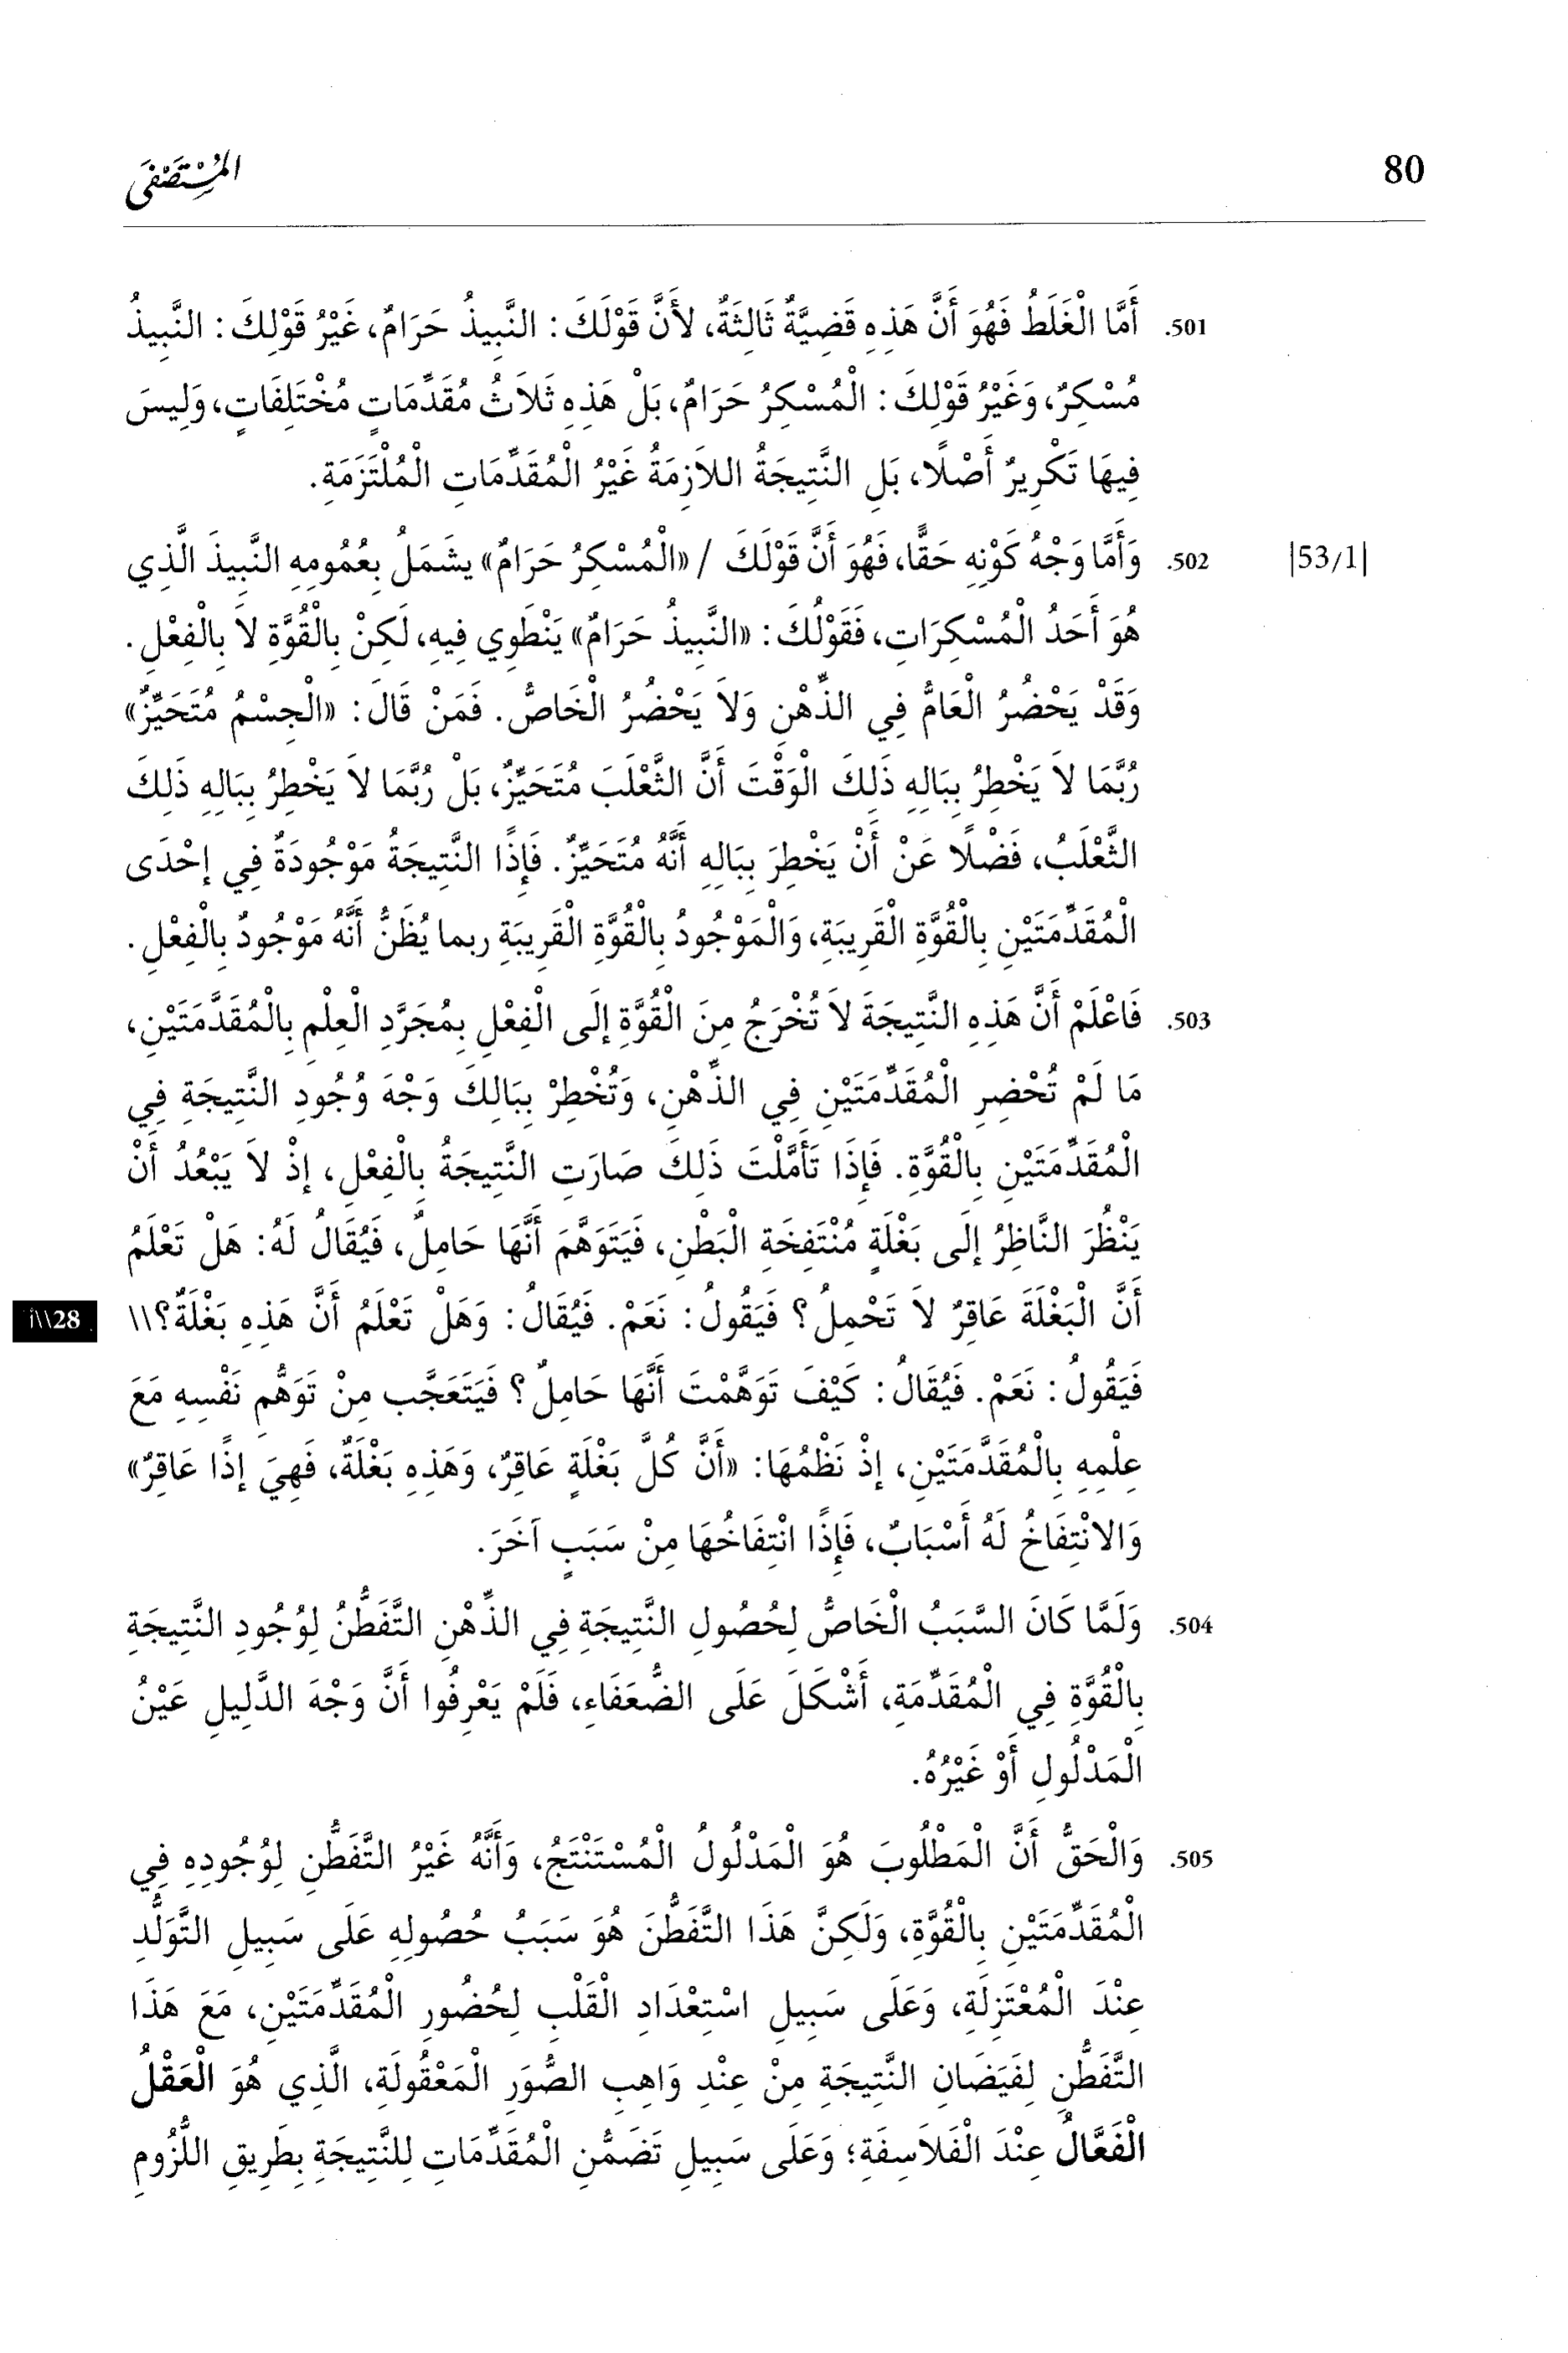 80
المُسْتَصْفَى
501. أَمَّا الْغَلَطُ فَهُوَ أَنَّ هَذِهِ قَضِيَّةٌ ثَالِثَةٌ، لأَنَّ قَوْلَكَ: النَّبِيذُ حَرَامٌ، غَيْرُ قَوْلِكَ: النَّبِيذُ
مُسْكِرٌ، وَغَيْرُ قَوْلِكَ: الْمُسْكِرُ حَرَامٌ، بَلْ هَذِهِ ثَلاَثُ مُقَدِّمَاتٍ مُخْتَلِفَاتٍ، وَلِيسَ
فِيهَا تَكْرِيرٌ أَصْلًا، بَلِ النَّتِيجَةُ اللاَزِمَةُ غَيْرُ الْمُقَدِّمَاتِ الْمُلْتَزَمَةِ.
502. وَأَمَّا وَجْهُ كَوْنِهِ حَقًّا، فَهُوَ أَنَّ قَوْلَكَ / «الْمُسْكِرُ حَرَامٌ» يشمَلُ بِعُمُومِهِ النَّبِيذَ الَّذِي |53/1|
هُوَ أَحَدُ الْمُسْكِرَاتِ، فَقَوْلُكَ: «النَّبِيذُ حَرَامٌ» يَنْطَوِي فِيهِ، لَكِنْ بِالْقُوَّةِ لاَ بِالْفِعْلِ.
وَقَدْ يَحْضُرُ الْعَامُّ فِي الذِّهْنِ وَلاَ يَحْضُرُ الْخَاصُّ. فَمَنْ قَالَ: «الْجِسْمُ مُتَحَيِّزٌ»
رُبَّمَا لاَ يَخْطِرُ بِبَالِهِ ذَلِكَ الْوَقْتَ أَنَّ الثَّعْلَبَ مُتَحَيِّزٌ، بَلْ رُبَّمَا لاَ يَخْطِرُ بِبَالِهِ ذَلِكَ
الثَّعْلَبُ، فَضْلًا عَنْ أَنْ يَخْطِرَ بِبَالِهِ أَنَّهُ مُتَحَيِّزٌ. فَإِذًا النَّتِيجَةُ مَوْجُودَةٌ فِي إِحْدَى
الْمُقَدِّمَتَيْنِ بِالْقُوَّةِ الْقَرِيبَةِ، وَالْمَوْجُودُ بِالْقُوَّةِ الْقَرِيبَةِ ربما يُظَنُّ أَنَّهُ مَوْجُودٌ بِالْفِعْلِ.
503. فَاعْلَمْ أَنَّ هَذِهِ النَّتِيجَةَ لاَ تُخْرَجُ مِنَ الْقُوَّةِ إِلَى الْفِعْلِ بِمُجَرَّدِ الْعِلْمِ بِالْمُقَدَّمَتَيْنِ،
مَا لَمْ تُحْضِرِ الْمُقَدِّمَتَيْنِ فِي الذِّهْنِ، وَتُخْطِرْ بِبَالِكَ وَجْهَ وُجُودِ النَّتِيجَةِ فِي
الْمُقَدِّمَتَيْنِ بِالْقُوَّةِ. فَإِذَا تَأَمَّلْتَ ذَلِكَ صَارَتِ النَّتِيجَةُ بِالْفِعْلِ، إِذْ لاَ يَبْعُدُ أَنْ
يَنْظُرَ النَّاظِرُ إِلَى بَغْلَةٍ مُنْتَفِخَةِ الْبَطْنِ، فَيَتَوَهَّمَ أَنَّهَا حَامِلٌ، فَيُقَالُ لَهُ: هَلْ تَعْلَمُ
أَنَّ الْبَغْلَةَ عَاقِرٌ لاَ تَحْمِلُ؟ فَيَقُولُ: نَعَمْ. فَيُقَالُ: وَهَلْ تَعْلَمُ أَنَّ هَذِهِ بَغْلَةٌ؟\\ 28\\أ
فَيَقُولُ: نَعَمْ. فَيُقَالُ: كَيْفَ تَوَهَّمْتَ أَنَّهَا حَامِلٌ؟ فَيَتَعَجَّب مِنْ تَوَهُّمِ نَفْسِهِ مَعَ
عِلْمِهِ بِالْمُقَدَّمَتَيْنِ، إِذْ نَظْمُهَا: «أَنَّ كُلَّ بَغْلَةٍ عَاقِرٌ، وَهَذِهِ بَغْلَةٌ، فَهِيَ إِذًا عَاقِرٌ»
وَالانْتِفَاخُ لَهُ أَسْبَابٌ، فَإِذًا انْتِفَاخُهَا مِنْ سَبَبٍ آخَرَ.
504. وَلَمَّا كَانَ السَّبَبُ الْخَاصُّ لِحُصُولِ النَّتِيجَةِ فِي الذِّهْنِ التَّفَطُّنُ لِوُجُودِ النَّتِيجَةِ
بِالْقُوَّةِ فِي الْمُقَدِّمَةِ، أَشْكَلَ عَلَى الضُّعَفَاءِ، فَلَمْ يَعْرِفُوا أَنَّ وَجْهَ الدَّلِيلِ عَيْنُ
الْمَدْلُولِ أَوْ غَيْرُهُ.
505. وَالْحَقُّ أَنَّ الْمَطْلُوبَ هُوَ الْمَدْلُولُ الْمُسْتَنْتَجُ، وَأَنَّهُ غَيْرُ التَّفَطُّنِ لِوُجُودِهِ فِي
الْمُقَدِّمَتَيْنِ بِالْقُوَّةِ، وَلَكِنَّ هَذَا التَّفَطُّنَ هُوَ سَبَبُ حُصُولِهِ عَلَى سَبِيلِ التَّوَلُّدِ
عِنْدَ الْمُعْتَزِلَةِ، وَعَلَى سَبِيلِ اسْتِعْدَادِ الْقَلْبِ لِحُضُورِ الْمُقَدِّمَتَيْنِ، مَعَ هَذَا
التَّفَطُّنِ لِفَيَضَانِ النَّتِيجَةِ مِنْ عِنْدِ وَاهِبِ الصُّوَرِ الْمَعْقُولَةِ، الَّذِي هُوَ الْعَقْلُ
الْفَعَّالُ عِنْدَ الْفَلاَسِفَةِ؛ وَعَلَى سَبِيلِ تَضَمُّنِ الْمُقَدِّمَاتِ لِلنَّتِيجَةِ بِطَرِيقِ اللُّزُومِ